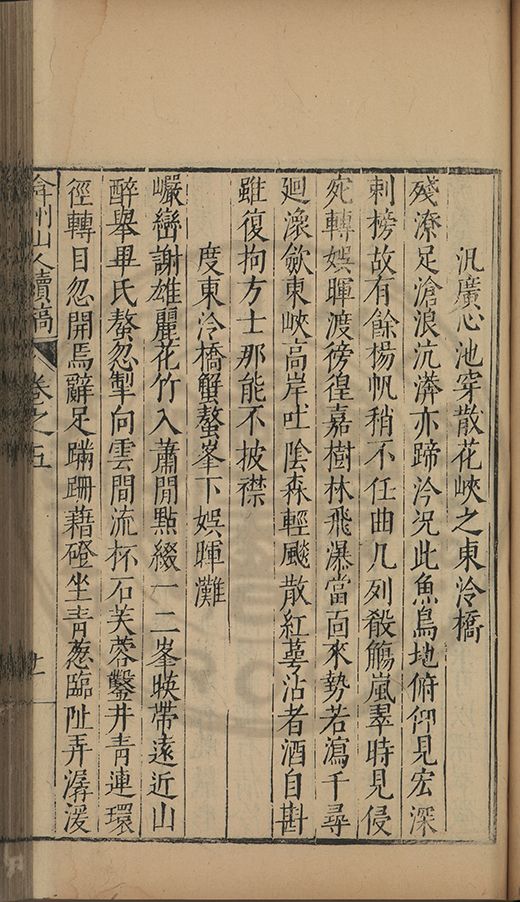 汎廣心池穿散花峽之東泠橋
殘潦足滄浪沆漭亦蹄涔況此魚鳥地俯仰見宏深
刺榜故有餘揚帆稍不任曲几列殽觴嵐翠時見侵
宛轉娛暉渡徬徨嘉樹林飛瀑當面來勢若瀉千尋
廻濠歛東峽高岸吐陰森輕颸散紅蕚沾者酒自斟
雖復拘方士那能不披襟
度東泠橋蟹螯峯下娛暉灘
巗巒謝雄麗花竹入蕭閒點綴一二峯暎帶遠近山
醉舉畢氏螯忽掣向雲間流杯石芙蓉鑿井青連環
徑轉目忽開焉辭足蹣跚藉磴坐青葱臨沚弄潺湲
弇州山人續稿
卷之五